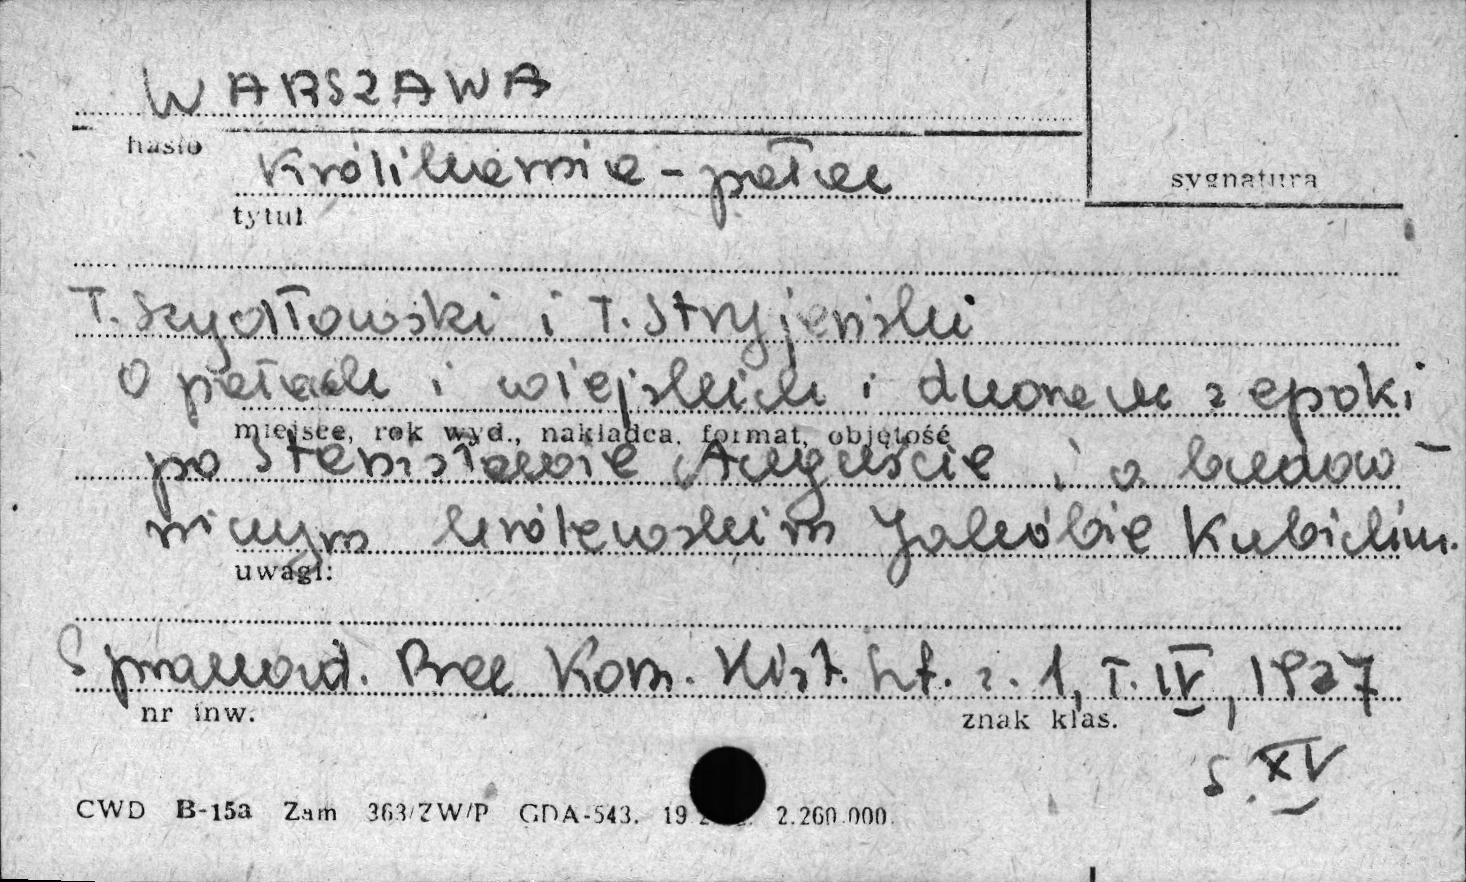 WARSZAWA
hasło
Królikarnia - pałac
sygnatura
tytuł
T. Szydłowski i T. Stryjeński
O pałacach i wiejskich i dworach z epoki
miejsce, rok wyd., nakładca, format, objętość
po Stanisławie Auguście i o budow-
niczym królewskim Jakóbie Kubickim.
uwagi:
Sprawozd. Prac Kom. Hist. Szt. z. 1, T. IV, 1927
nr inw.
znak klas.
s. XV
CWD B-15a Zam 363/ZW/P GDA-543. 19 2.260.000.